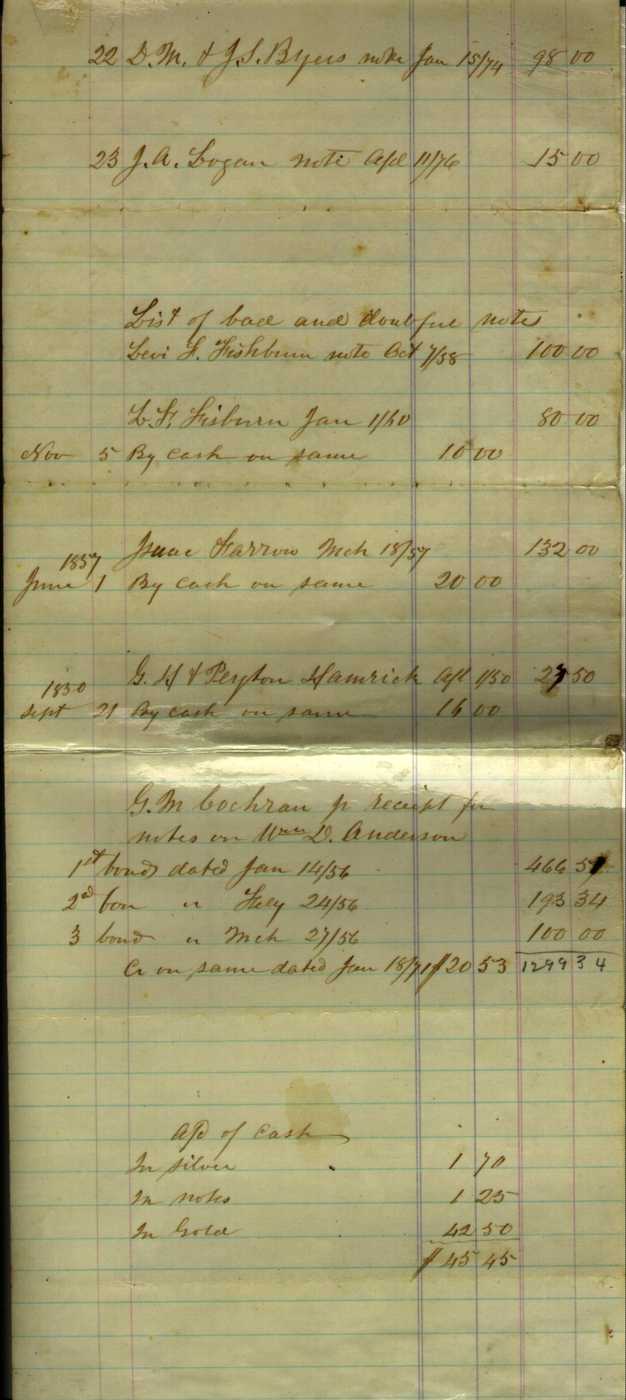 22 D. M. & J. S. Byers note Jan 15/74 98 00
23 J. A. Logan note Apl 11/76 15 00
List of bad and doubtful notes
Levi F. Fishburn note Oct 7/58 100 00
L. F. Fisburn Jan 1/60 80 00
Nov 5 By cash on same 10 00
Isaac Farrow Mch 18/57 132 00
1857
June 1 By cash on same 20 00
G. H & Peyton Hamrick Apl 1/50 27 50
1850
Sept 21 By cash on same 16 00
G. M Cochran jr receipt for
notes on Wm D. Anderson
1st bond dated Jan 14/56 466 51
2d bon " Feby 24/56 193 34
3 bond " Mch 27/56 100 00
Cr on same dated Jan 18/71 $20 53 1299 34
Apd of Cash
In silver 1 70
In notes 1 25
In Gold 42 50
$45 45